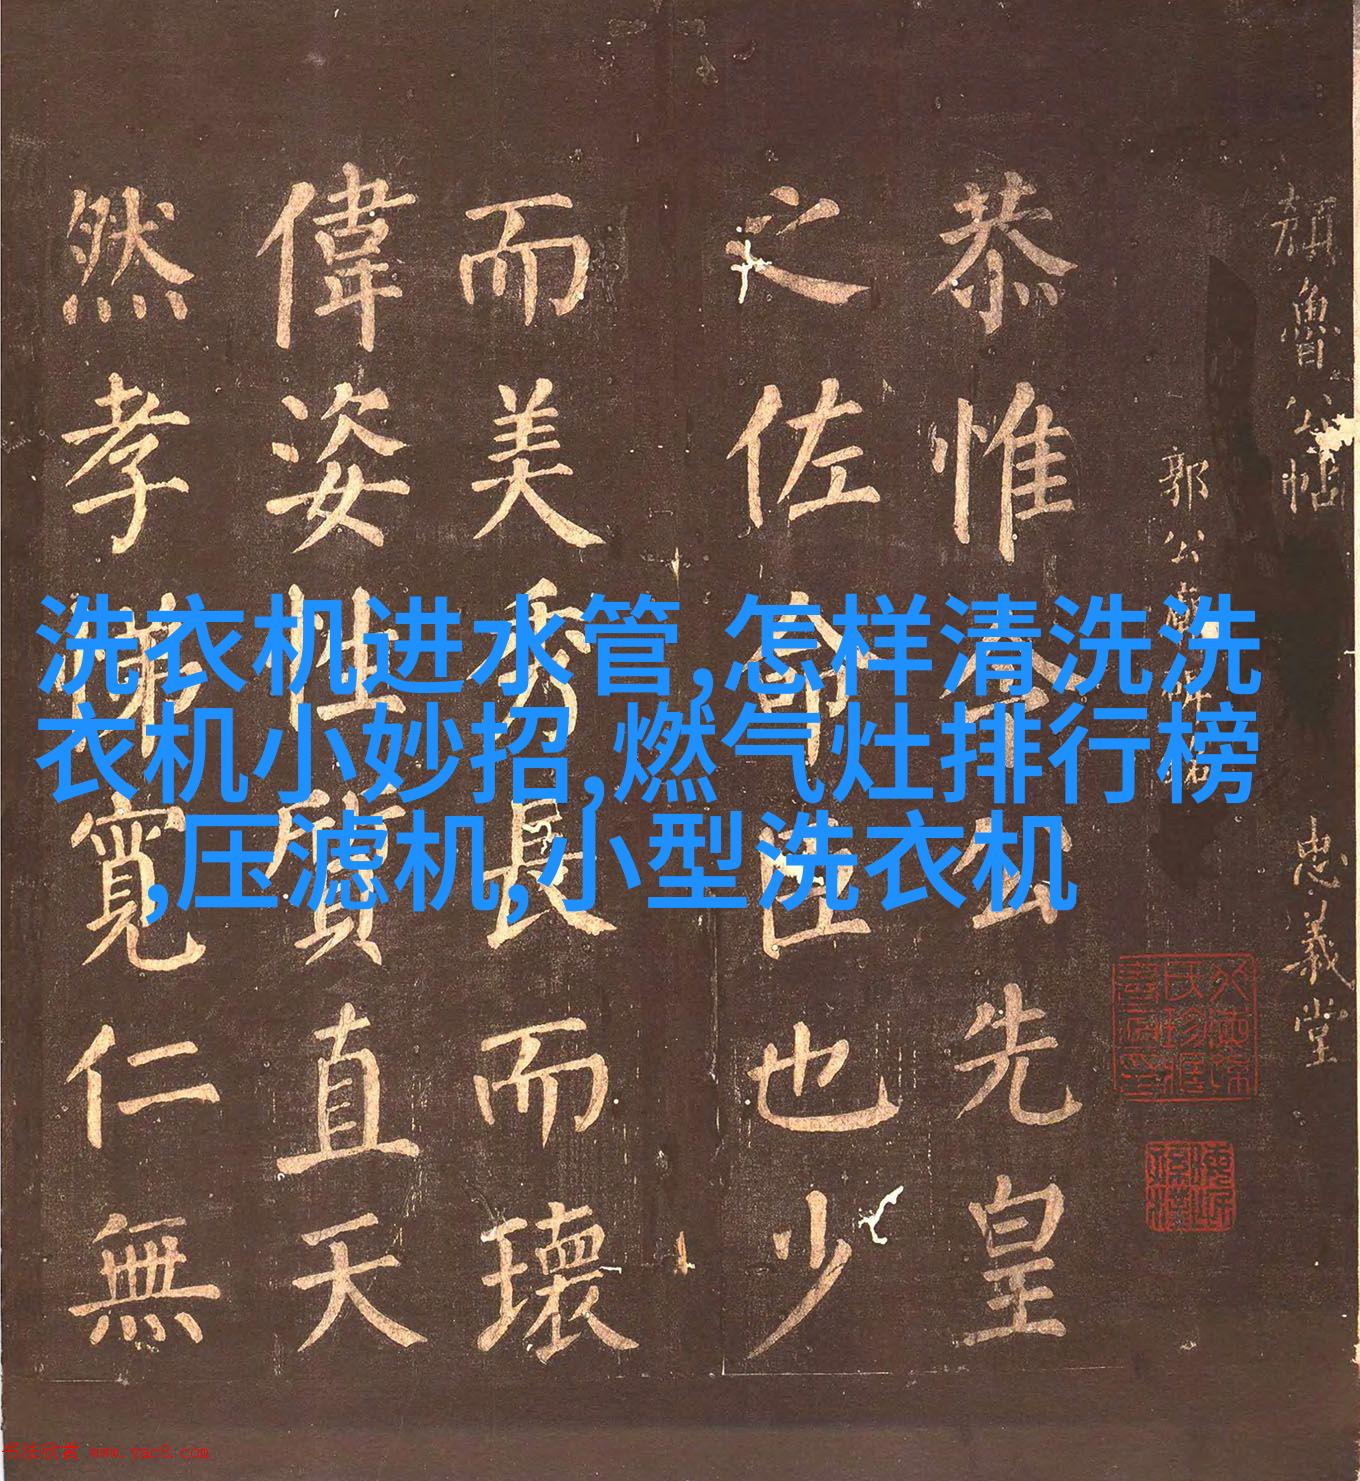 顔魯公帖
忠義堂
郭公廟碑銘
恭惟令公先皇
之佐命臣也少
而美秀長而瓌
偉姿性質直天
然孝悌寛仁無
洗衣机进水管,怎样清洗洗
衣机小妙招,燃气灶排行榜
,压滤机,小型洗衣机
书法欣赏 www.yac8.com